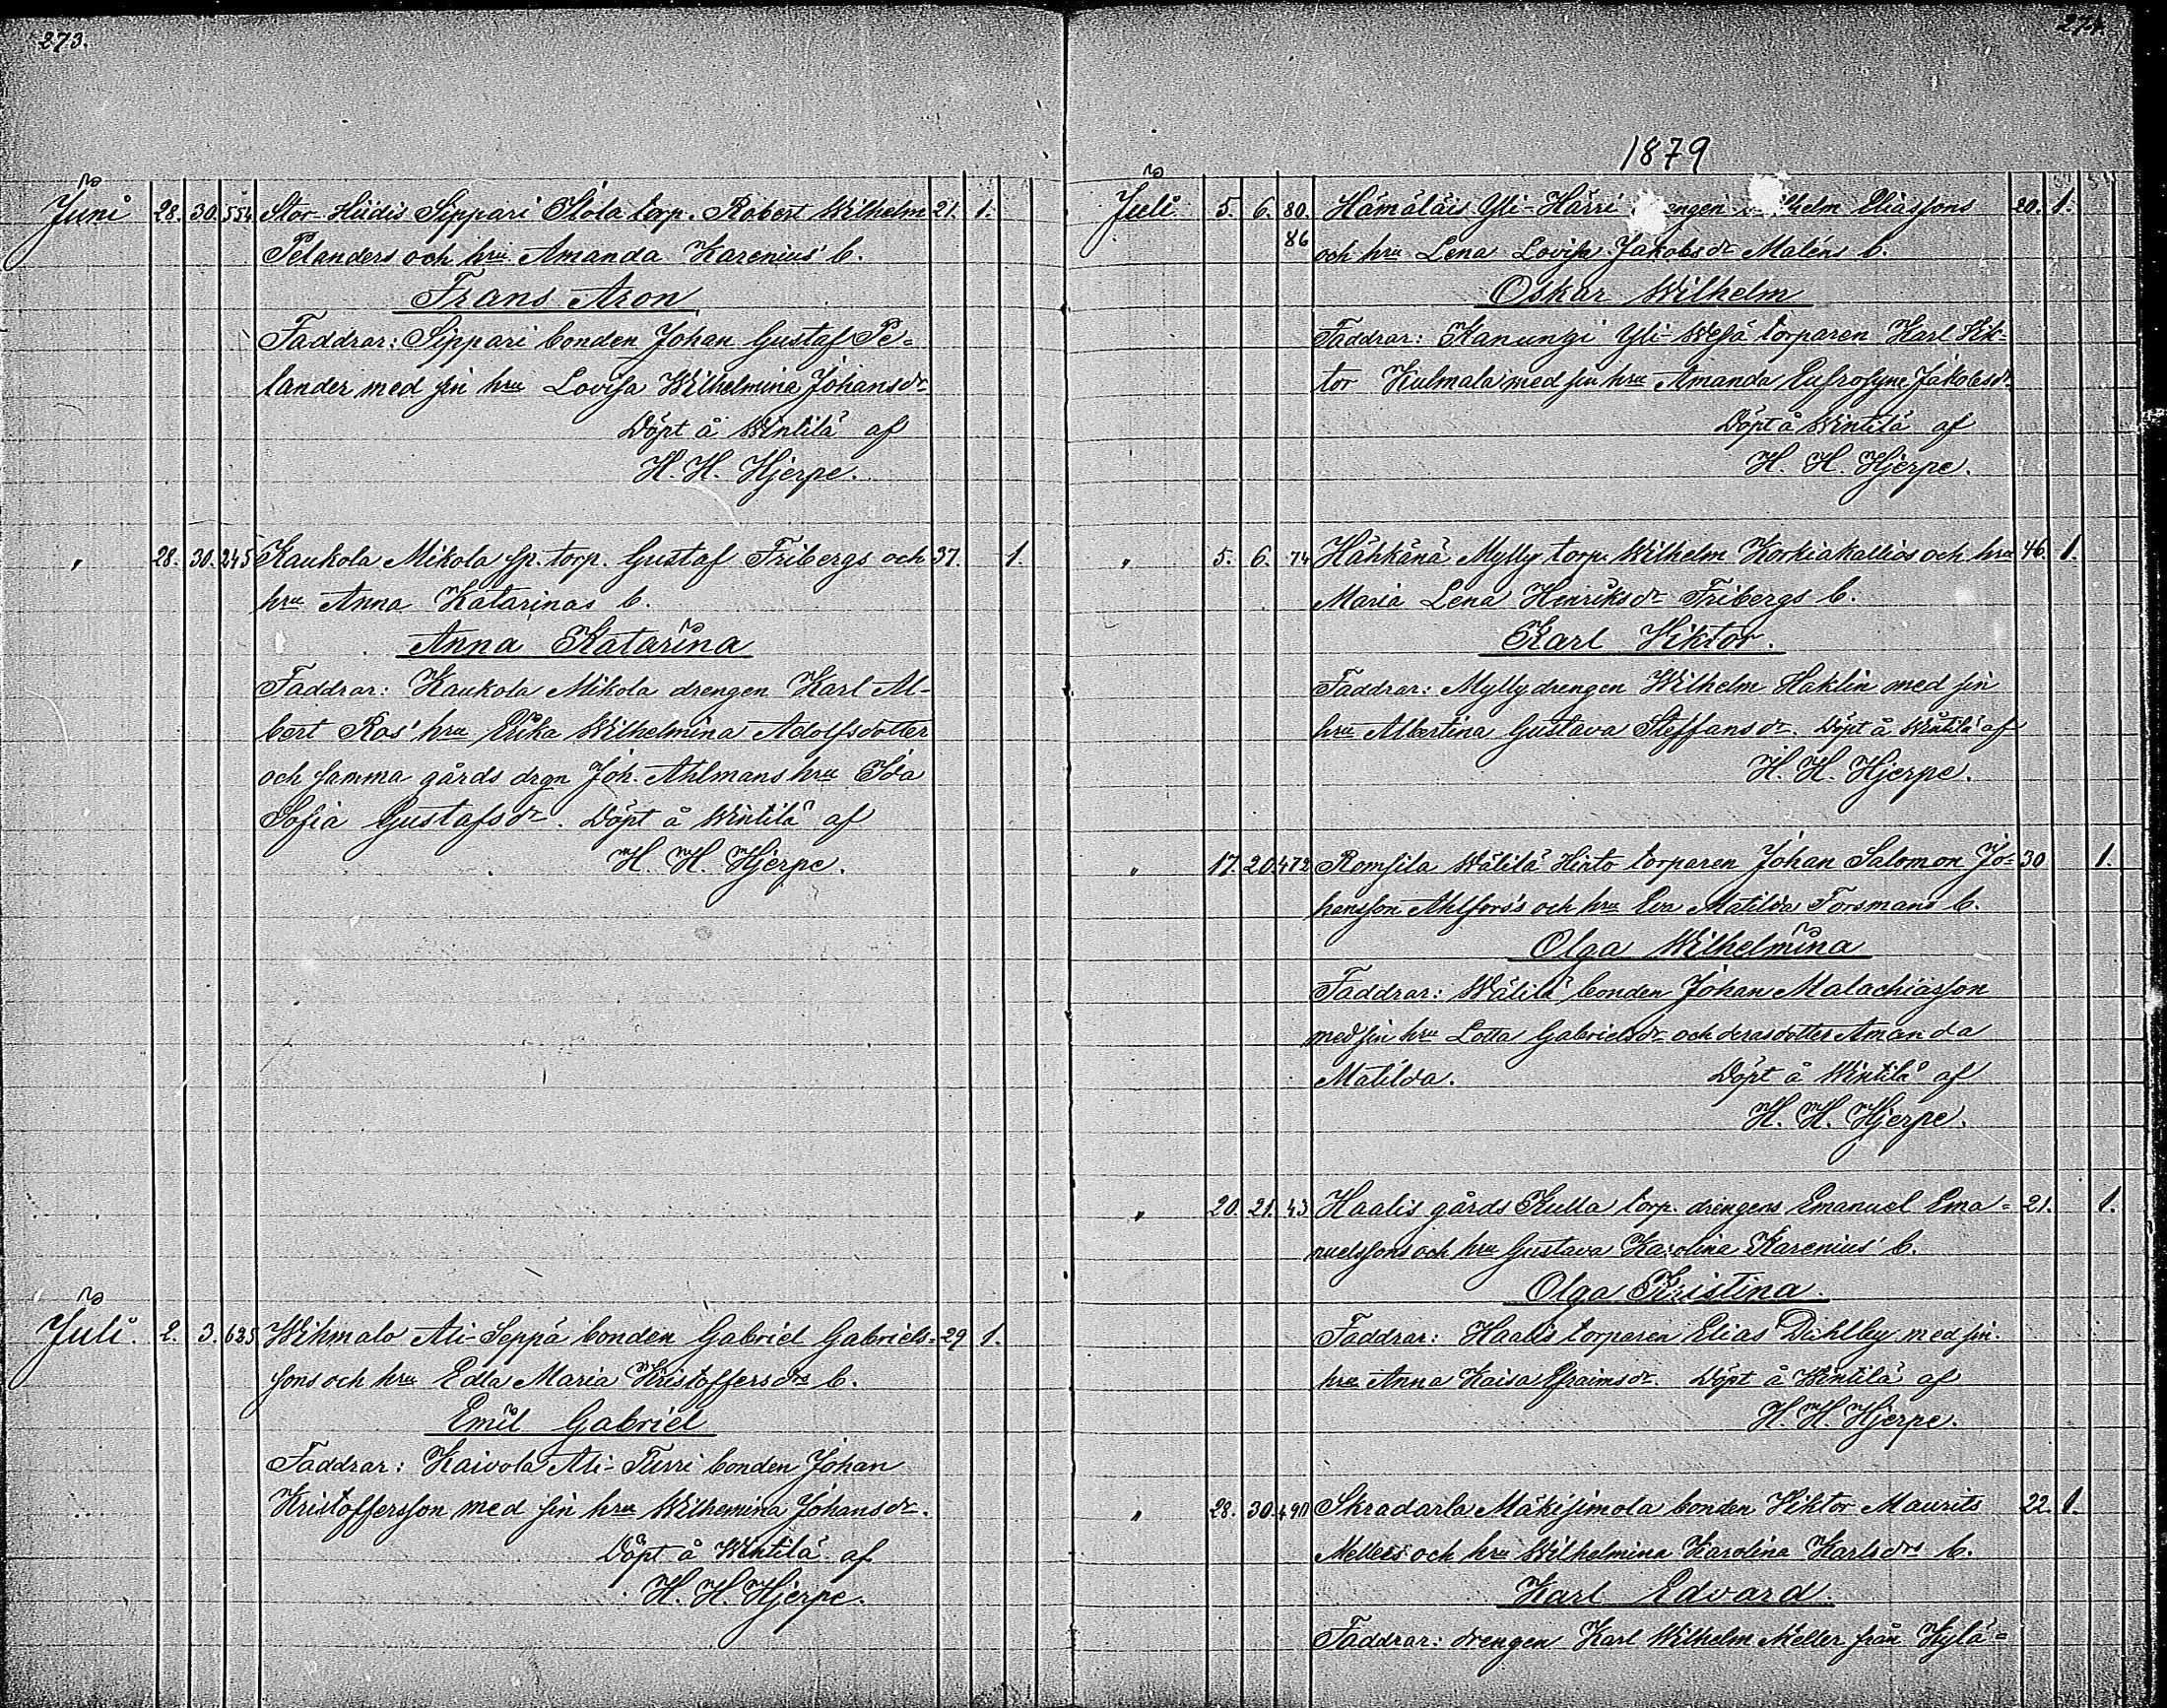 273.
Juni 28. 30. 554 Stor-Hüdis Sippari Stola torp. Robert Wilhelm 21. 1.
Pelanders och hru Amanda Karenius' b.
Frans Aron
Faddrar: Sippari bonden Johan Gustaf Pe-
lander med sin hru Lovisa Wilhelmina Johansdr
Döpt å Wintilä af
H. H. Hjerpe.
" 28. 30. 245 Kaukola Mikola sp. torp. Gustaf Fribergs och 37. 1.
hru Anna Katarinas b.
Anna Katarina
Faddrar: Kaukola Mikola drengen Karl Al-
bert Ros' hru Erika Wilhelmina Adolfsdotter
och samma gårds drgn Joh. Ahlmans hru Ida
Sofia Gustafsdr. Döpt å Wintilä af
H. H. Hjerpe.
Juli. 2. 3. 635 Wihmalo Ali-Seppä bonden Gabriel Gabriels- 29 1.
sons och hru Edla Maria Kristoffersdrs b.
Emil Gabriel
Faddrar: Kaivola Ali-Turri bonden Johan
Kristoffersson med sin hru Wilhemina Johansdr.
Döpt å Wintilä af
H. H. Hjerpe.
274.
1879
Juli. 5. 6. 80. Hämäläis Yli-Härri Wilhelm Eliassons 20. 1.
86 och hru Lena Lovisa Jakobsdr Maléns b.
Oskar Wilhelm
Faddrar: Kanungi Yli-Wesä torparen Karl Vik-
tor Kulmala med sin hru Amanda Eufrosyne Jakobsdr
Döpt å Wintilä af
H. H. Hjerpe.
" 5. 6. 74 Hähkänä Mylly torp. Wilhelm Korkiakallios och hru 46. 1.
Maria Lena Henriksdr Fribergs b.
Karl Viktor.
Faddrar: Mylly drengen Wilhelm Haklin med sin
hru Albertina Gustava Steffansdr. Döpt å Wintilä af
H. H. Hjerpe.
" 17. 20. 472 Romsila Wälilä Hinto torparen Johan Salomon Jo- 30 1.
hansson Ahlfors's och hru Eva Matilda Forsmans b.
Olga Wilhelmina
Faddrar: Wälilä bonden Johan Malachiasson
med sin hru Lotta Gabrielsdr och deras dotter Amanda
Matilda. Döpt å Wintilä af
H. H. Hjerpe.
" 20. 21. 43 Haalis gårds Kulla torp. drengens Emanuel Ema- 21. 1.
nuelssons och hru Gustava Karolina Karenius' b.
Olga Kristina.
Faddrar: Haalis torparen Elias Dahlby med sin
hru Anna Kaisa Efraimsdr. Döpt å Wintilä af
H. H. Hjerpe.
" 28. 30. 490 Skradarla Mäkisimola bonden Viktor Maurits 22. 1.
Mellers och hru Wilhelmina Karolina Karlsdrs b.
Karl Edvard.
Faddrar: drengen Karl Wilhelm Meller från Kylä-